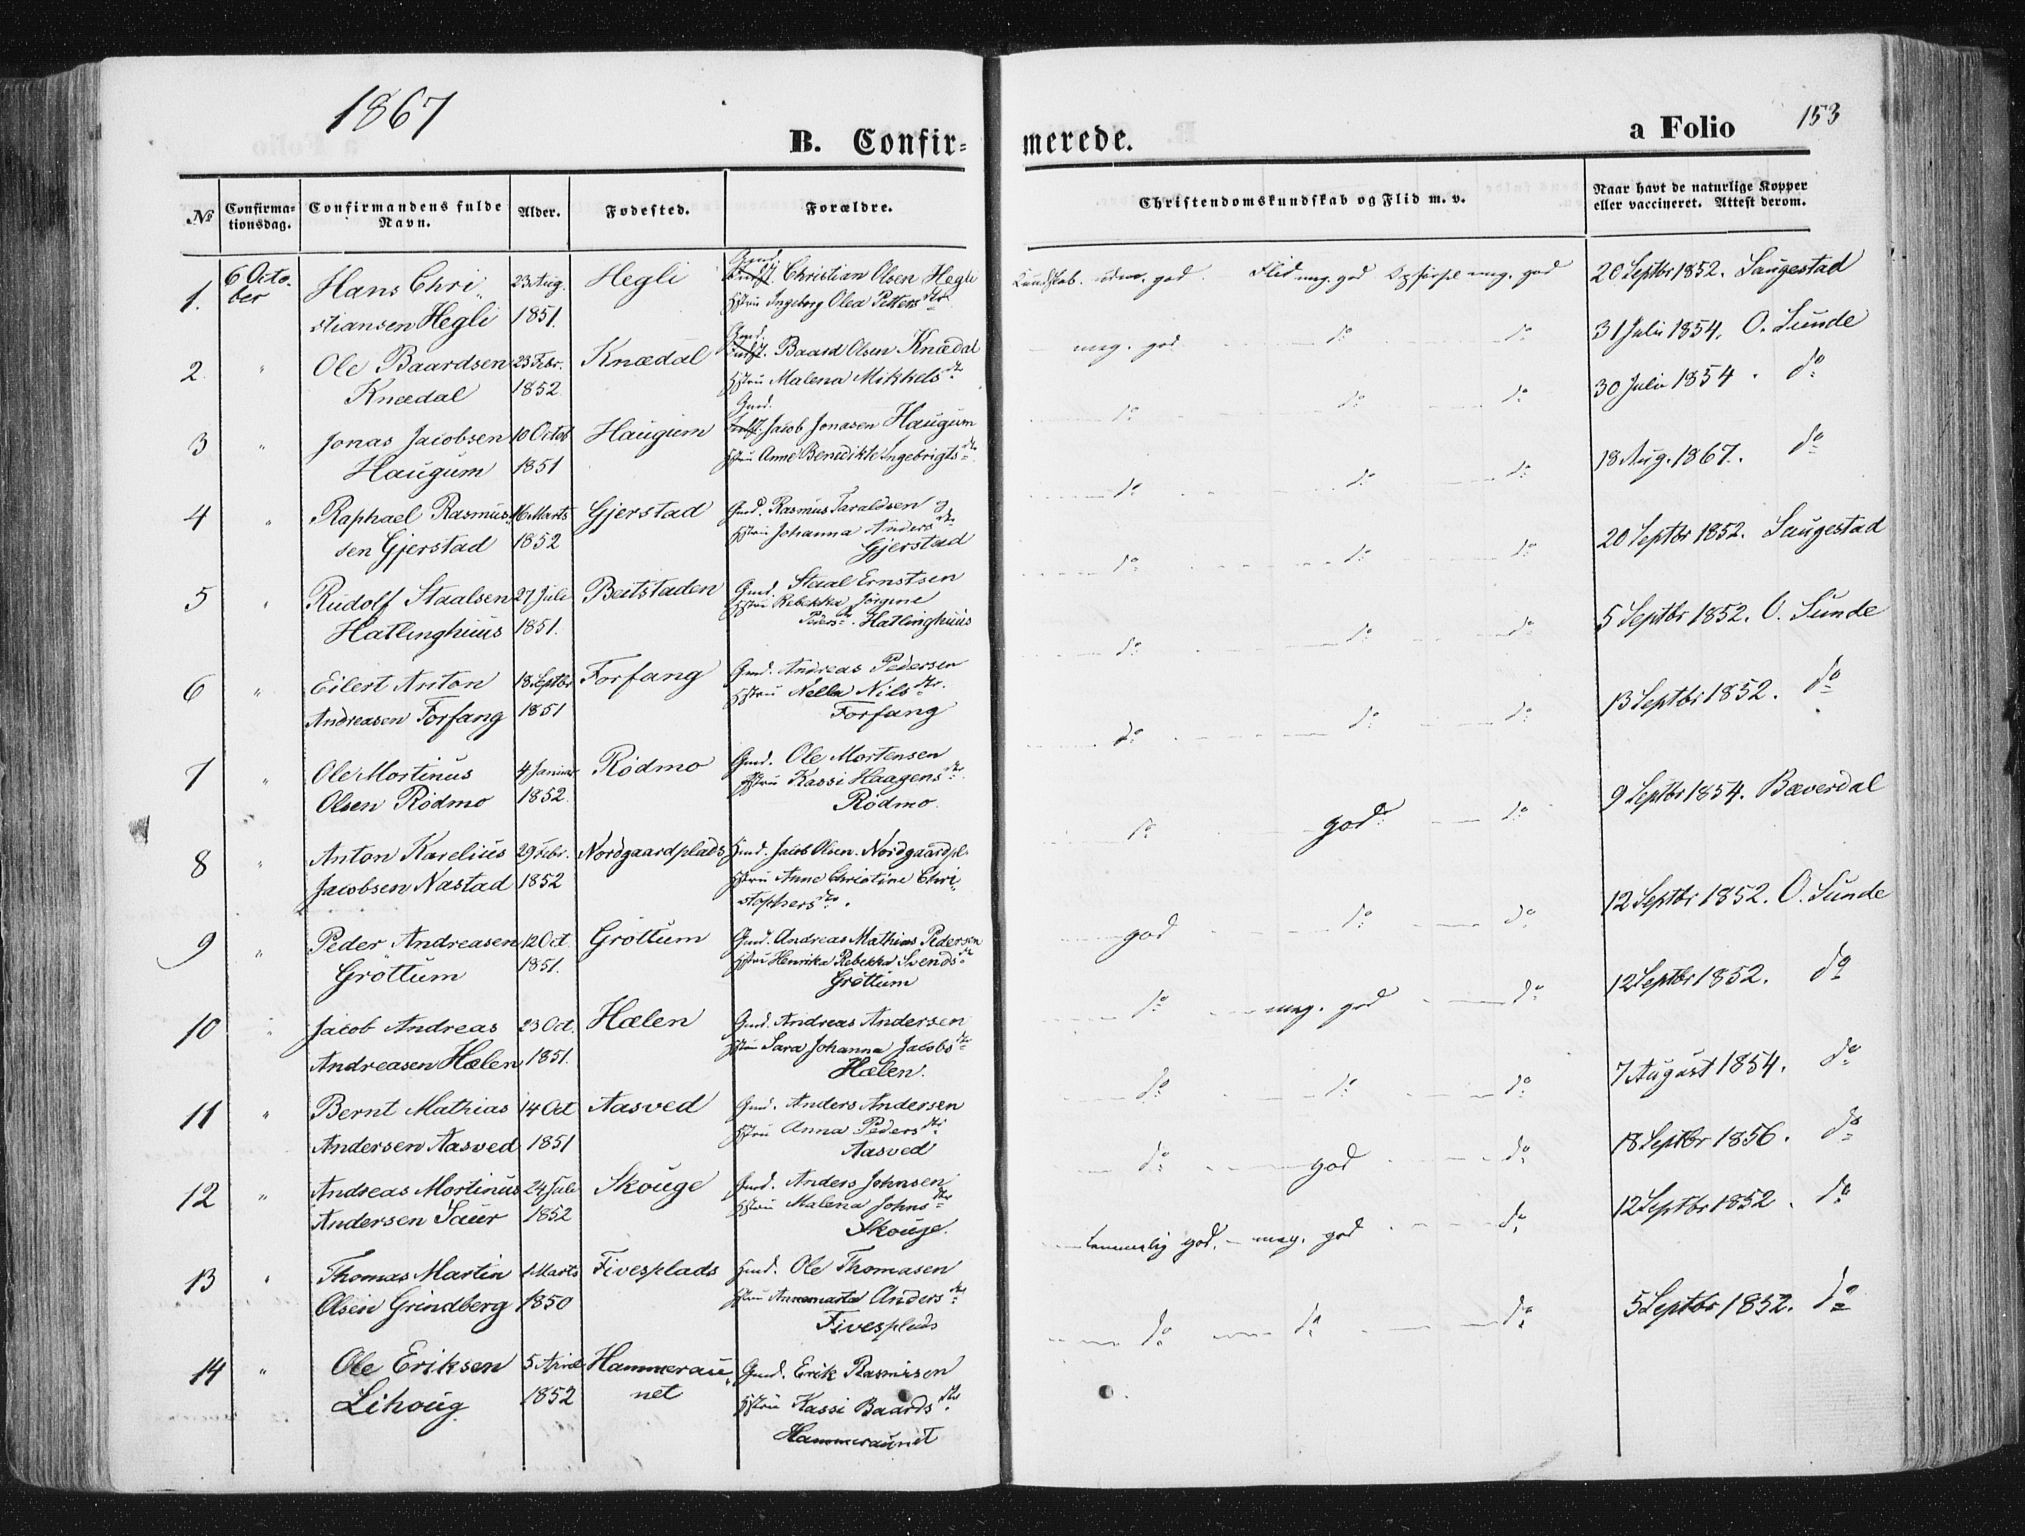 1867
B. Confir-
merede.
a Folio 153
No
Confirma-
tionsdag.
Confirmandens fulde
Navn.
Alder.
Fødested.
Forældre.
Christendomskundskab og Flid m. v.
Naar havt de naturlige Kopper
eller vaccineret. Attest derom.
1. 6 Octo-
ber
Hans Chri„
stiansen Hegli
23 Aug.
1851.
Hegli
Gmd.
Christian Olsen Hegli
Hstru Ingeborg Olea Petters dtr
Kundskab. udm. god. Flid meg. god Opførsel meg. god
20 Septbr 1852. Saugestad
2 "
Ole Baardsen
Knædal
23 Febr.
1852
Knædal
Gmd.
Baard Olsen Knædal
Hstru Malena Mikkels dtr
meg. god do do
31 Juli 1854. O. Sunde
3 "
Jonas Jacobsen
Haugum
10 Octob
1851
Haugum
Gmd.
Jacob Jonasen Haugum
Hstru Anne Benedikte Ingebrigts dtr
do do do
30 Juli 1854. do
4 "
Raphael Rasmus„
sen Gjerstad
16 Marts
1852
Gjerstad
Gmd. Rasmus Taraldsen og
Hstru Johanna Anders dtr
Gjerstad
do do do
18 Aug. 1867. do
5 "
Rudolf Staalsen
Hatlinghuus
27 Juli
1851.
Beitstaden
Gmd. Staal Ernstsen
Hstru Rebekka Jörgine
Peders dtr. Hatlinghuus
do do do
20 Septbr 1852. Saugestad
6 "
Eilert Anton
Andreasen Forfang
18 Septbr
1851
Forfang
Gmd. Andreas Pedersen
Hstru Nella Nils dtr.
Forfang
do do do
5 Septbr 1852. O. Sunde
7 "
Ole Mortinus
Olsen Rødmo
4 Januar
1852.
Rødmo
Gmd. Ole Mortensen
Hstru Kassi Haagens dtr
Rødmo.
do do do
13 Septbr 1852. do
8 "
Anton Karelius
Jacobsen Nastad
29 Febr.
1852
Nordgaardsplads
Hmd. Jacob Olsen. Nordgaardpl.
Hstru Anne Christine Chri„
stophers dtr.
do god do
9 Septbr 1854. Bæverdal
9 "
Peder Andreasen
Grøttum
12 Oct.
1851.
Grøttum
Gmd. Andreas Mathias Pedersen
Hstru Henrika Rebekka Svends dtr
Grøttum
god do do
12 Septbr 1852. O. Sunde
10 "
Jacob Andreas
Andreasen Hælen
23 Oct.
1851.
Hælen
Gmd. Andreas Andersen
Hstru Sara Johanna Jacobs dtr
Hælen.
do meg. god do
12 Septbr 1852. do
11 "
Bernt Mathias
Andersen Aasved
14 Oct
1851
Aasved
Gmd. Anders Andersen
Hstru Anna Peders dtr
Aasved
do do do
7 August 1854. do
12 "
Andreas Mortinus
Andersen Saur
24 Juli
1852
Skouge
Gmd. Anders Johnsen
Hstru Malena Johns dtr
Skouge.
do god do
18 Septbr 1856. do
13 "
Thomas Martin
Olsen Grindberg
1 Marts
1850
Fivesplads
Hmd. Ole Thomasen
Hstru Annemarta Anders dtr
Fivesplads
temmelig god. meg. god do
12 Septbr 1852. do
14 "
Ole Eriksen
Lihoug
5 April
1852
Hammerau„
net
Gmd. Erik Rasmusen
Hstru Kassi Baards dtr
Hammeraunet
do do do
5 Septbr 1852. do